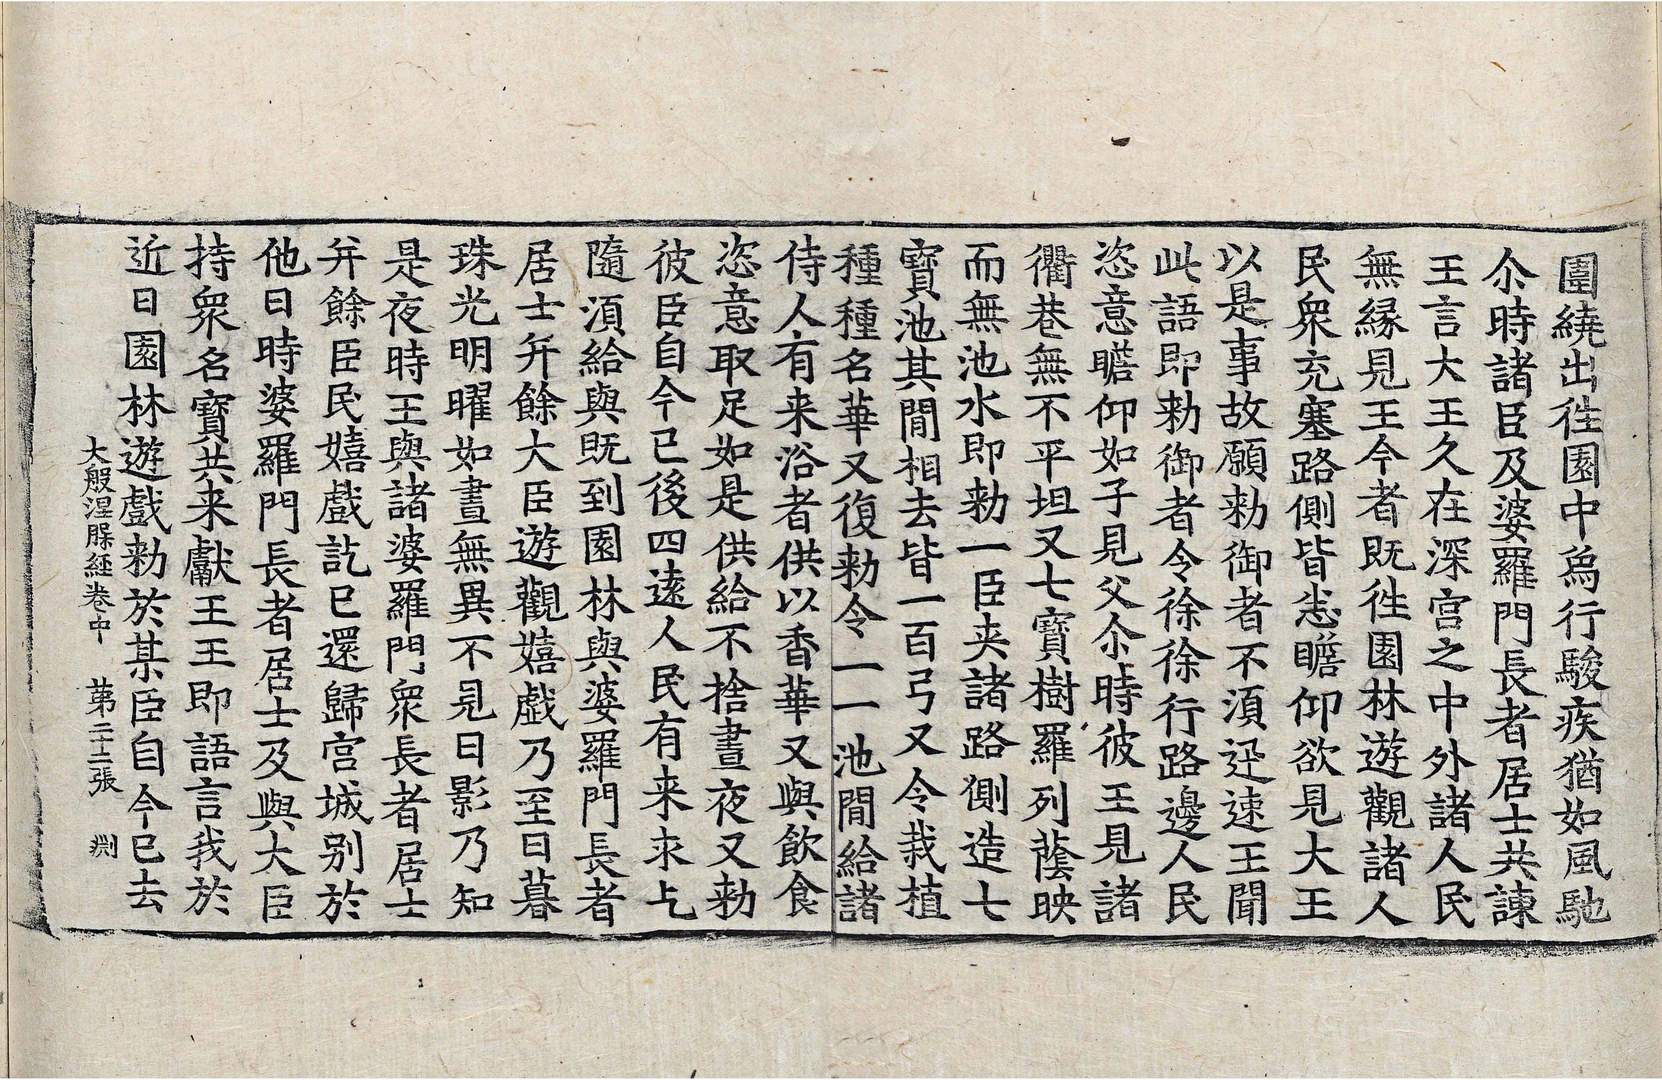 圍繞出徃園中爲行駿疾猶如風馳
尒時諸臣及婆羅門長者居士共諫
王言大王久在深宮之中外諸人民
無縁見王今者既徃園林遊觀諸人
民衆充塞路側皆悉瞻仰欲見大王
以是事故願勑御者不湏迅速王聞
此語即勑御者令徐徐行路邊人民
恣意瞻仰如子見父尒時彼王見諸
衢巷無不平坦又七寶樹羅列蔭映
而無池水即勑一臣夾諸路側造七
寶池其間相去皆一百弓又令栽植
種種名華又復勑令一一池間給諸
侍人有来浴者供以香華又與飲食
恣意取足如是供給不捨晝夜又勑
彼臣自今已後四逺人民有来求乞
隨湏給與既到園林與婆羅門長者
居士并餘大臣遊觀嬉戯乃至日暮
珠光明曜如晝無異不見日影乃知
是夜時王與諸婆羅門衆長者居士
并餘臣民嬉戲訖已還歸宮城别於
他日時婆羅門長者居士及與大臣
持衆名寶共来獻王王即語言我於
近日園林遊戲勑於某臣自今已去
大般涅槃經卷中　第二十二張　渕